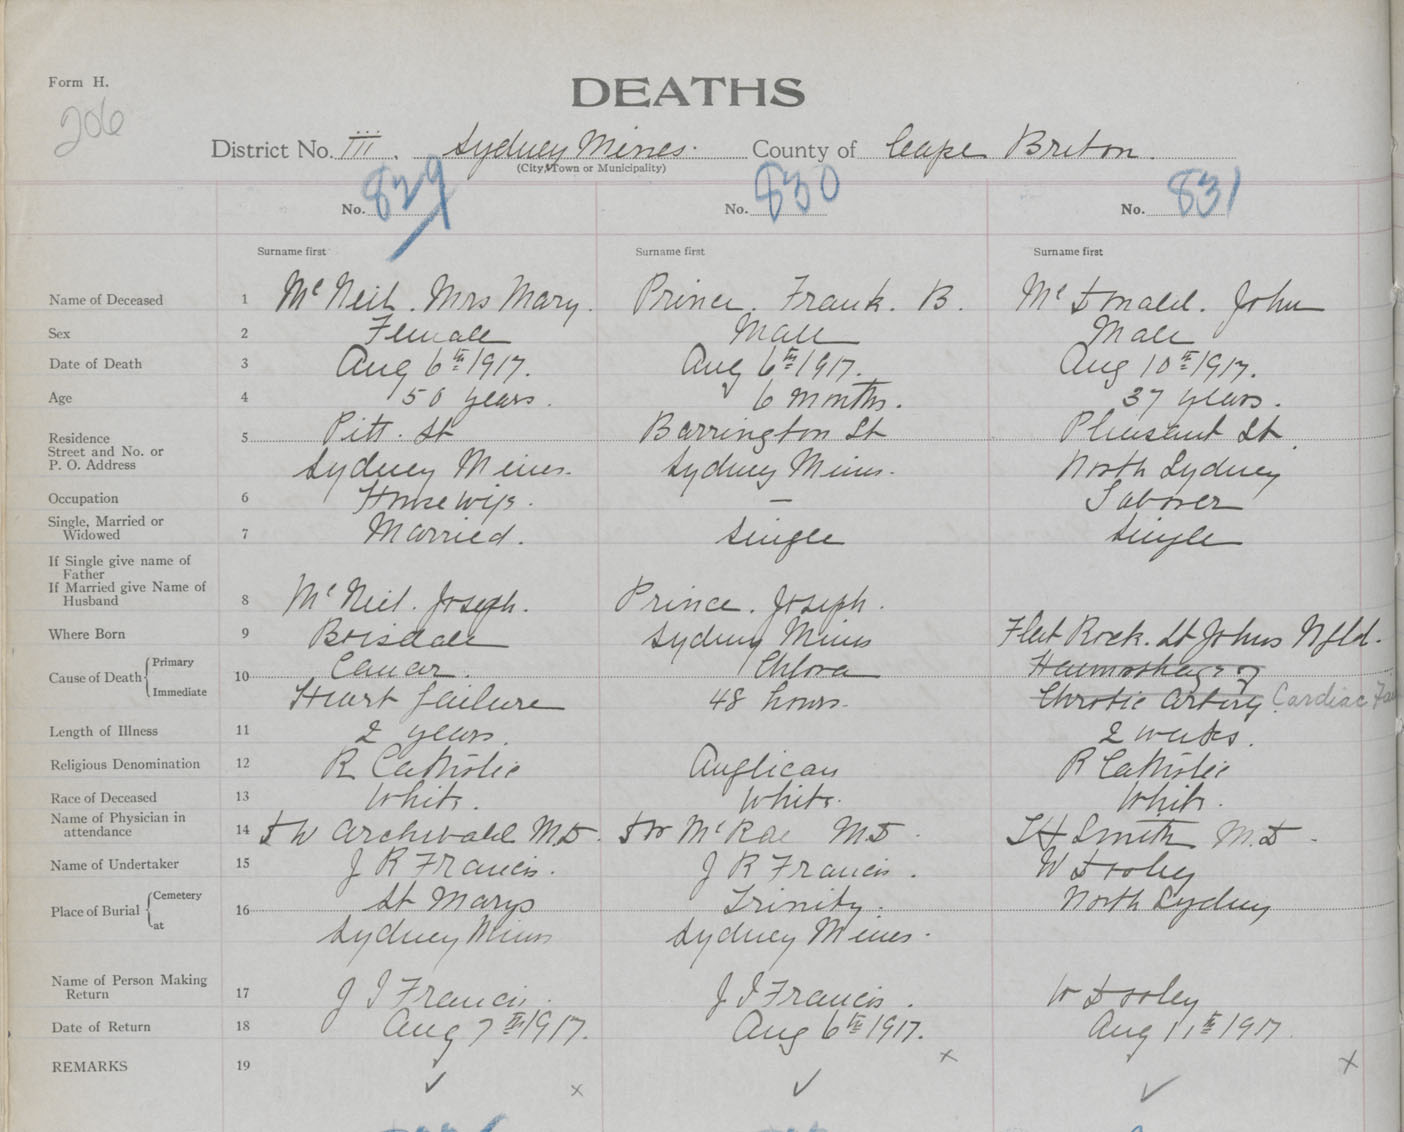 Form H.
206
DEATHS
District No. III. Sydney Mines. County of Cape Breton.
(City, Town or Municipality)
No. 829 No. 830 No. 831
Surname first Surname first Surname first
Name of Deceased 1 McNeil. Mrs Mary. Prince. Frank. B. McDonald. John
Sex 2 Female Male Male
Date of Death 3 Aug 6th 1917. Aug 6th 1917. Aug 10th 1917.
Age 4 50 years. 6 months. 37 years.
Residence 5 Pitt. St Barrington St Pleasant St.
Street and No. or
P. O. Address Sydney Mines. Sydney Mines. North Sydney
Occupation 6 Housewife. — Laborer
Single, Married or
Widowed 7 Married. Single Single
If Single give name of
Father
If Married give Name of
Husband 8 McNeil. Joseph. Prince. Joseph.
Where Born 9 Boisdale Sydney Mines Flat Rock. St Johns Nfld.
Cause of Death Primary 10 Cancer. Chlora Haemorhage of
Immediate Heart failure 48 hours. artery. Cardiac
Length of Illness 11 2 years. 2 weeks.
Religious Denomination 12 R Catholic Anglican R Catholic
Race of Deceased 13 White. White. White.
Name of Physician in
attendance 14 D W Archibald M.D. Dr McRae M.D. Smith M.D.
Name of Undertaker 15 J R Francis. J R Francis. W Dooley
Place of Burial Cemetery 16 St Marys Trinity. North Sydney
at Sydney Mines Sydney Mines.
Name of Person Making
Return 17 J J Francis. J J Francis. W Dooley
Date of Return 18 Aug 7th 1917. Aug 6th 1917. Aug 11th 1917
REMARKS 19
✓ x ✓ x ✓ x